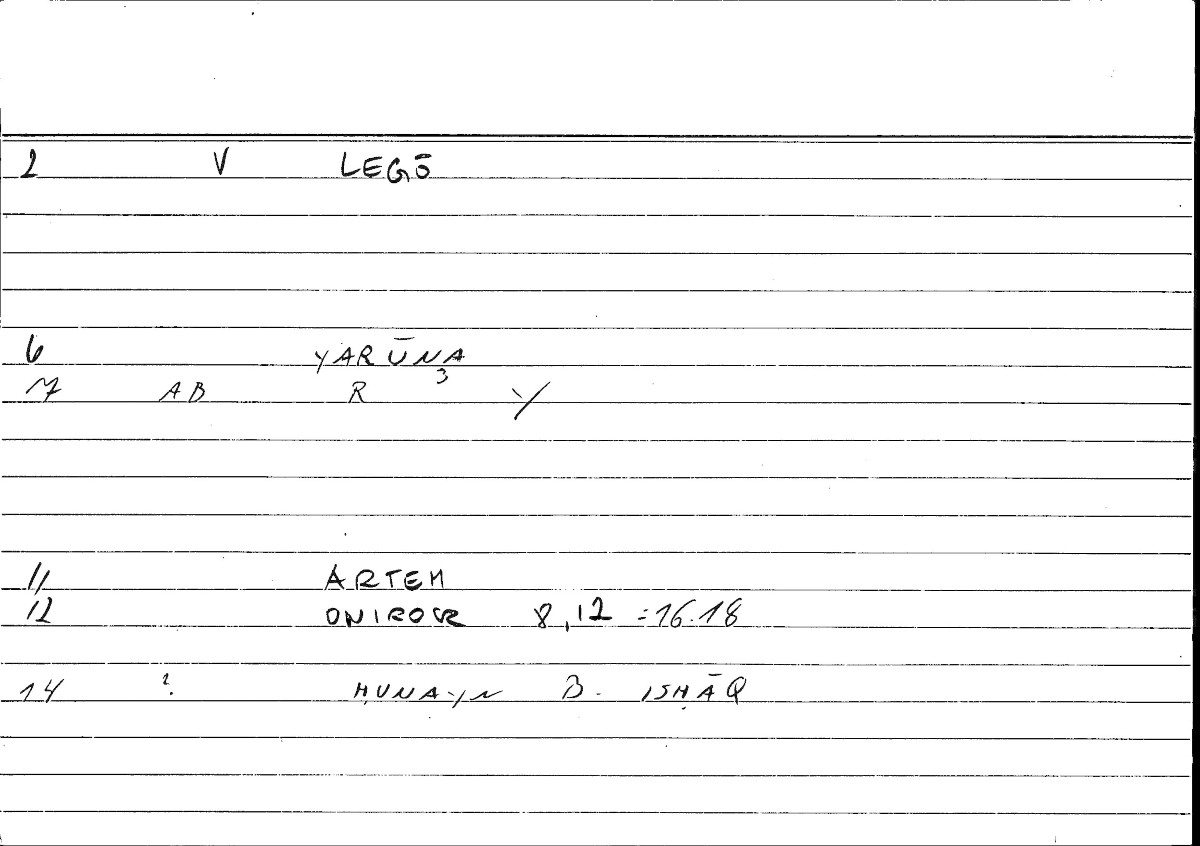 2 V LEGŌ
6 YARŪNA
3
17 AB R Y
11 ARTEM
12 ONIROCR 8,12 =16.18
14 ? ḤUNAYN B. ISḤĀQ